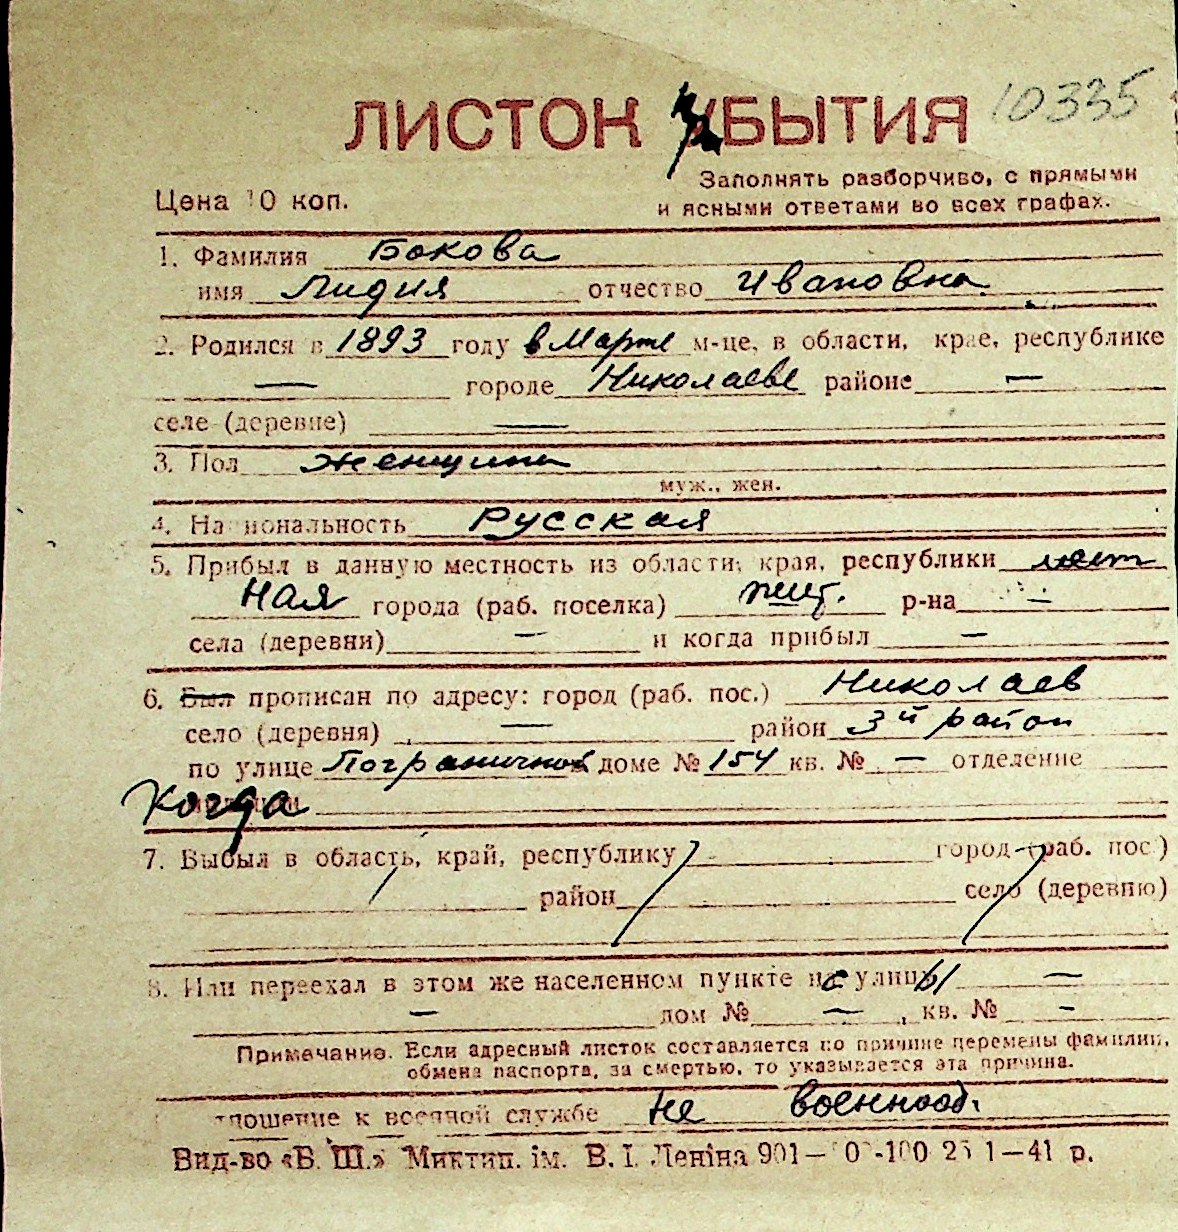 10335
ЛИСТОК БЫТИЯ
Заполнять разборчиво, с прямыми
Цена 10 коп.
и ясными ответами во всех графах.
1. Фамилия Бокова
имя Лидия отчество Ивановна
2. Родился в 1893 году в Марте м-це, в области, крае, республике
— городе Николаеве районе —
селе (деревне) —
3. Пол женщина
муж., жен.
4. Национальность Русская
5. Прибыл в данную местность из области, края, республики мест
ная города (раб. поселка) р-на —
села (деревни) — и когда прибыл —
6. Был прописан по адресу: город (раб. пос.) Николаев
село (деревня) — район 3й район
по улице Пограничной доме № 154 кв. № — отделение
Когда
7. Выбыл в область, край, республику город (раб. пос.)
район село (деревню)
8. Или переехал в этом же населенном пункте с улицы —
— дом № — , кв. № —
Примечание. Если адресный листок составляется по причине перемены фамилии,
обмена паспорта, за смертью, то указывается эта причина.
отношение к военной службе не военнооб.
Вид-во «Б. Ш.» Миктип. ім. В. І. Леніна 901— 41 р.